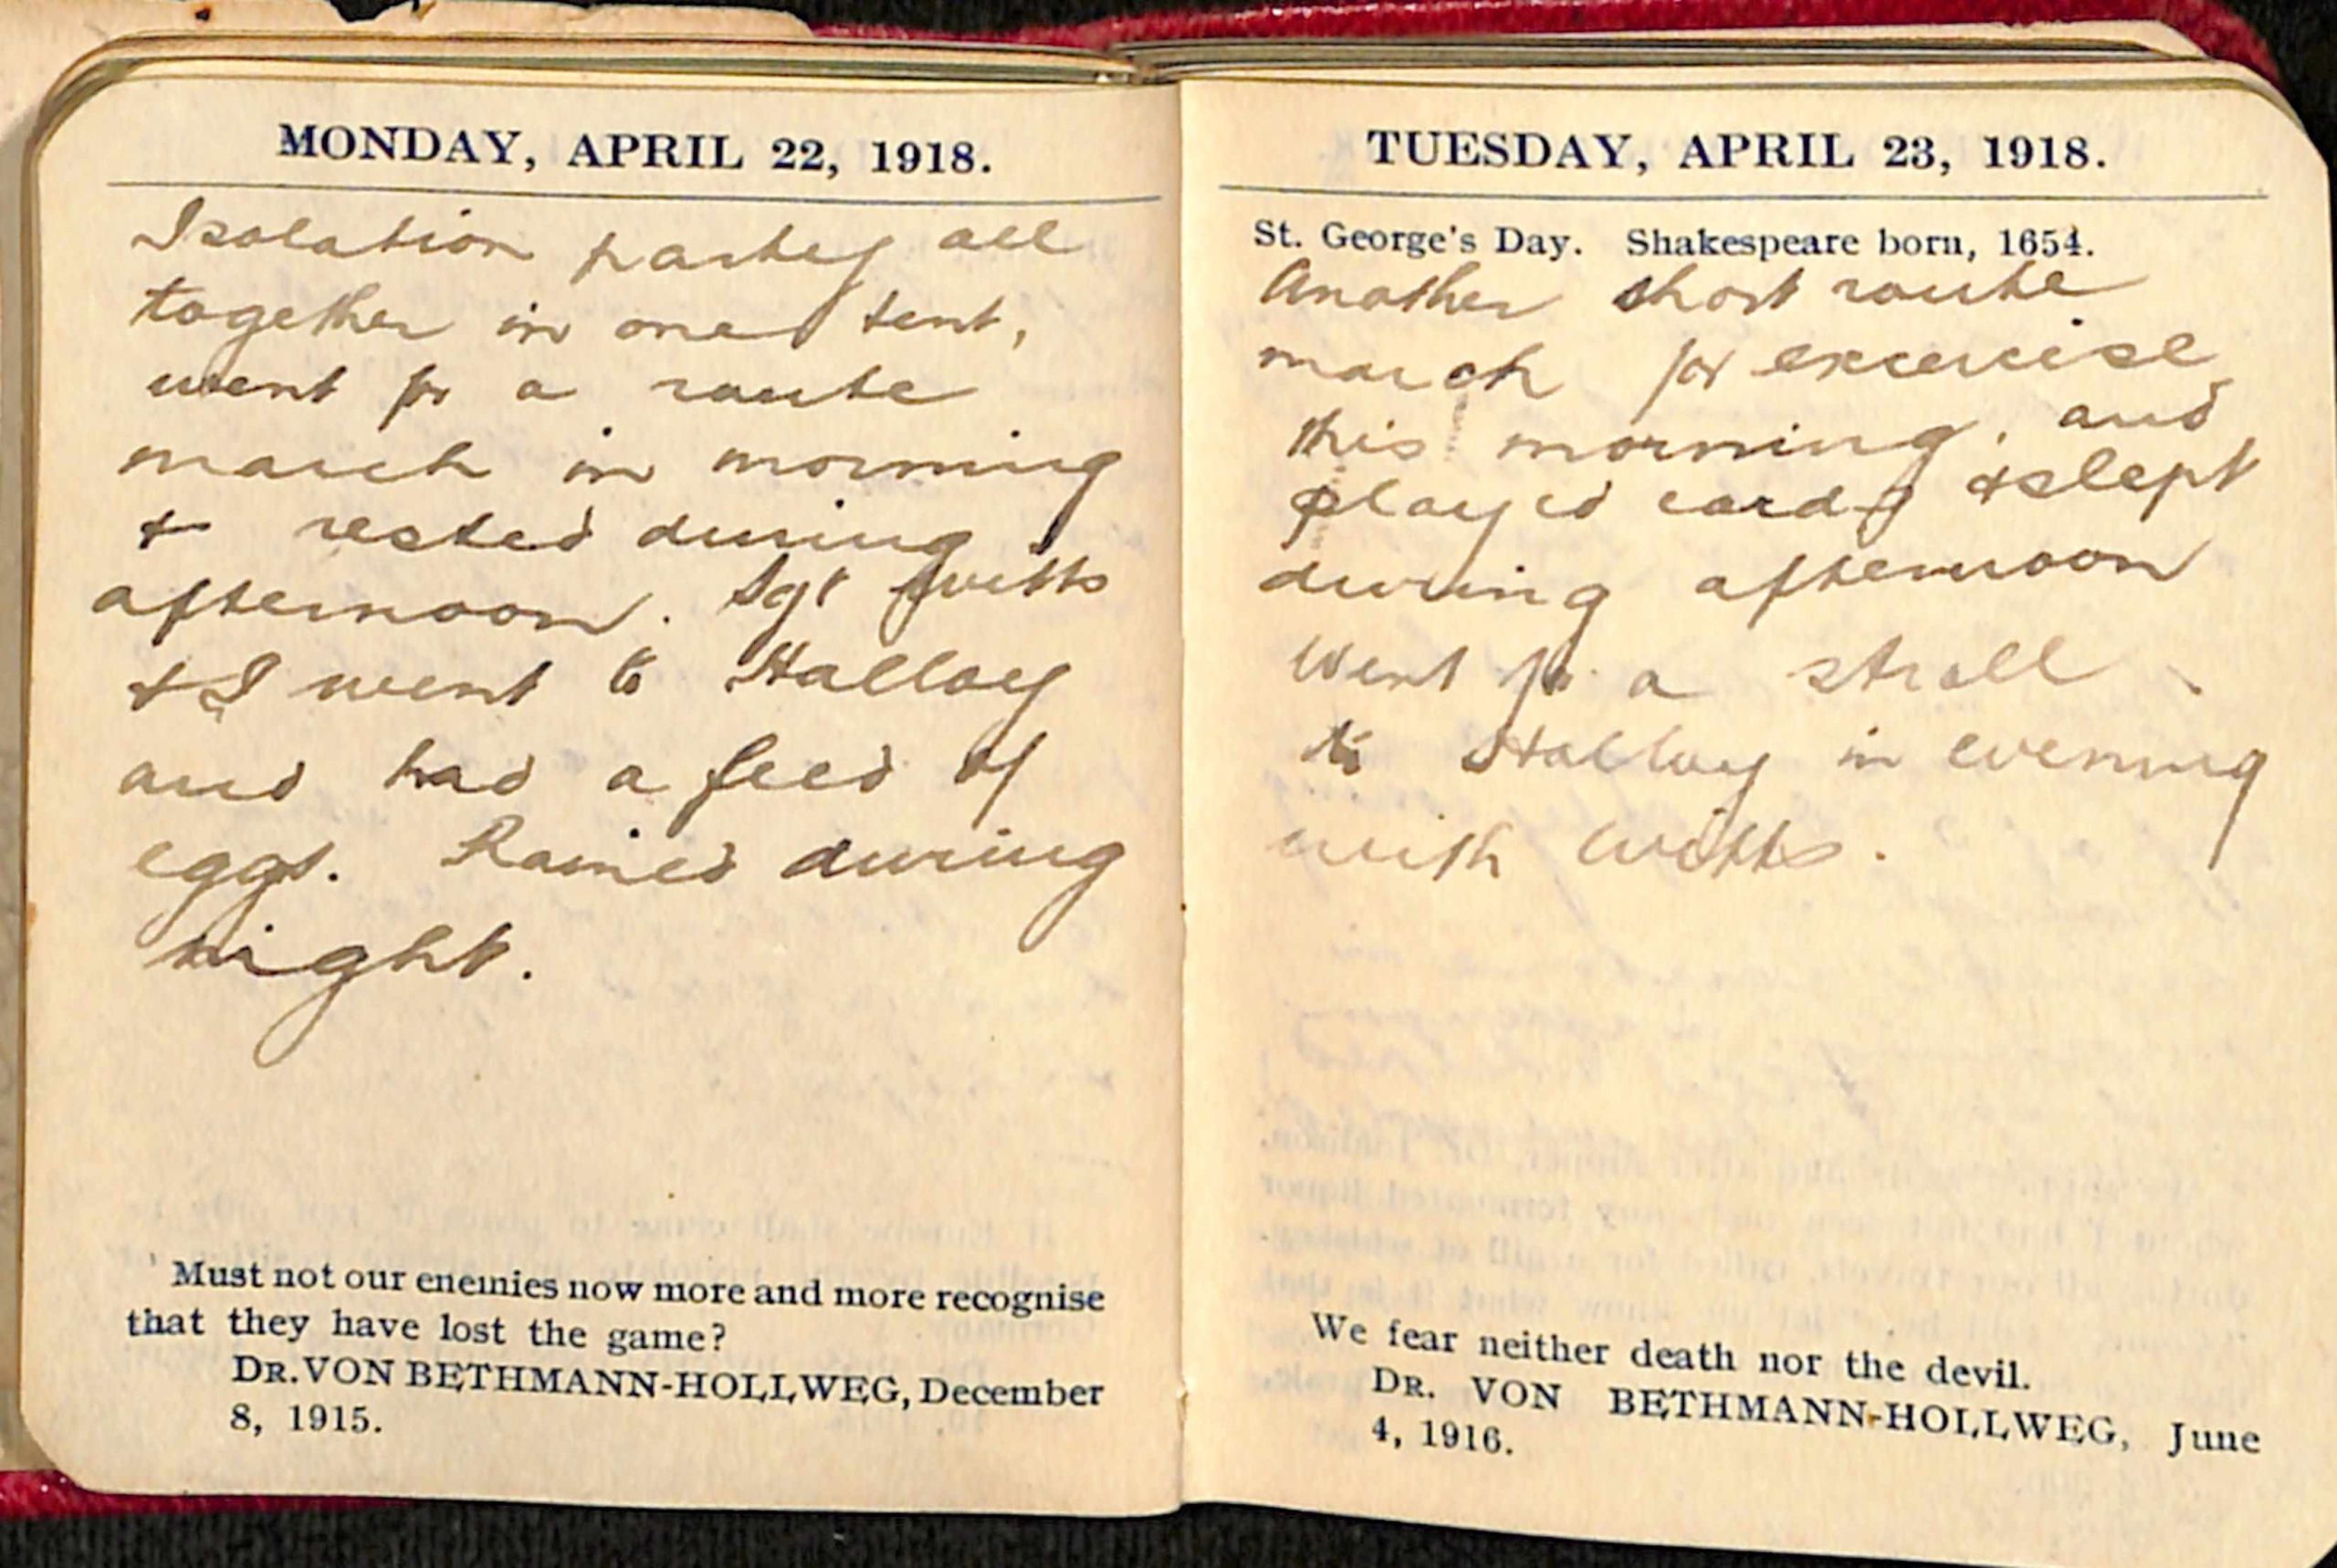 MONDAY, APRIL 22, 1918.
Isolation party all
together in one tent,
went for a route
march in morning
+ rested during
afternoon. Sgt Witts
+ I went to Halloy
and had a feed of
eggs. Rained during
night.
Must not our enemies now more and more recognise
that they have lost the game?
DR. VON BETHMANN-HOLLWEG, December
8, 1915.
TUESDAY, APRIL 23, 1918.
St. George's Day. Shakespeare born, 1654.
Another short route
march for excercise
this morning, and
played cards + slept
during afternoon
Went for a stroll
to Halloy in evening
with Witts.
We fear neither death nor the devil.
DR. VON BETHMANN-HOLLWEG, June
4, 1916.